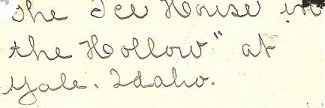 the Ice House in
the Hollow" at
Yale. Idaho.